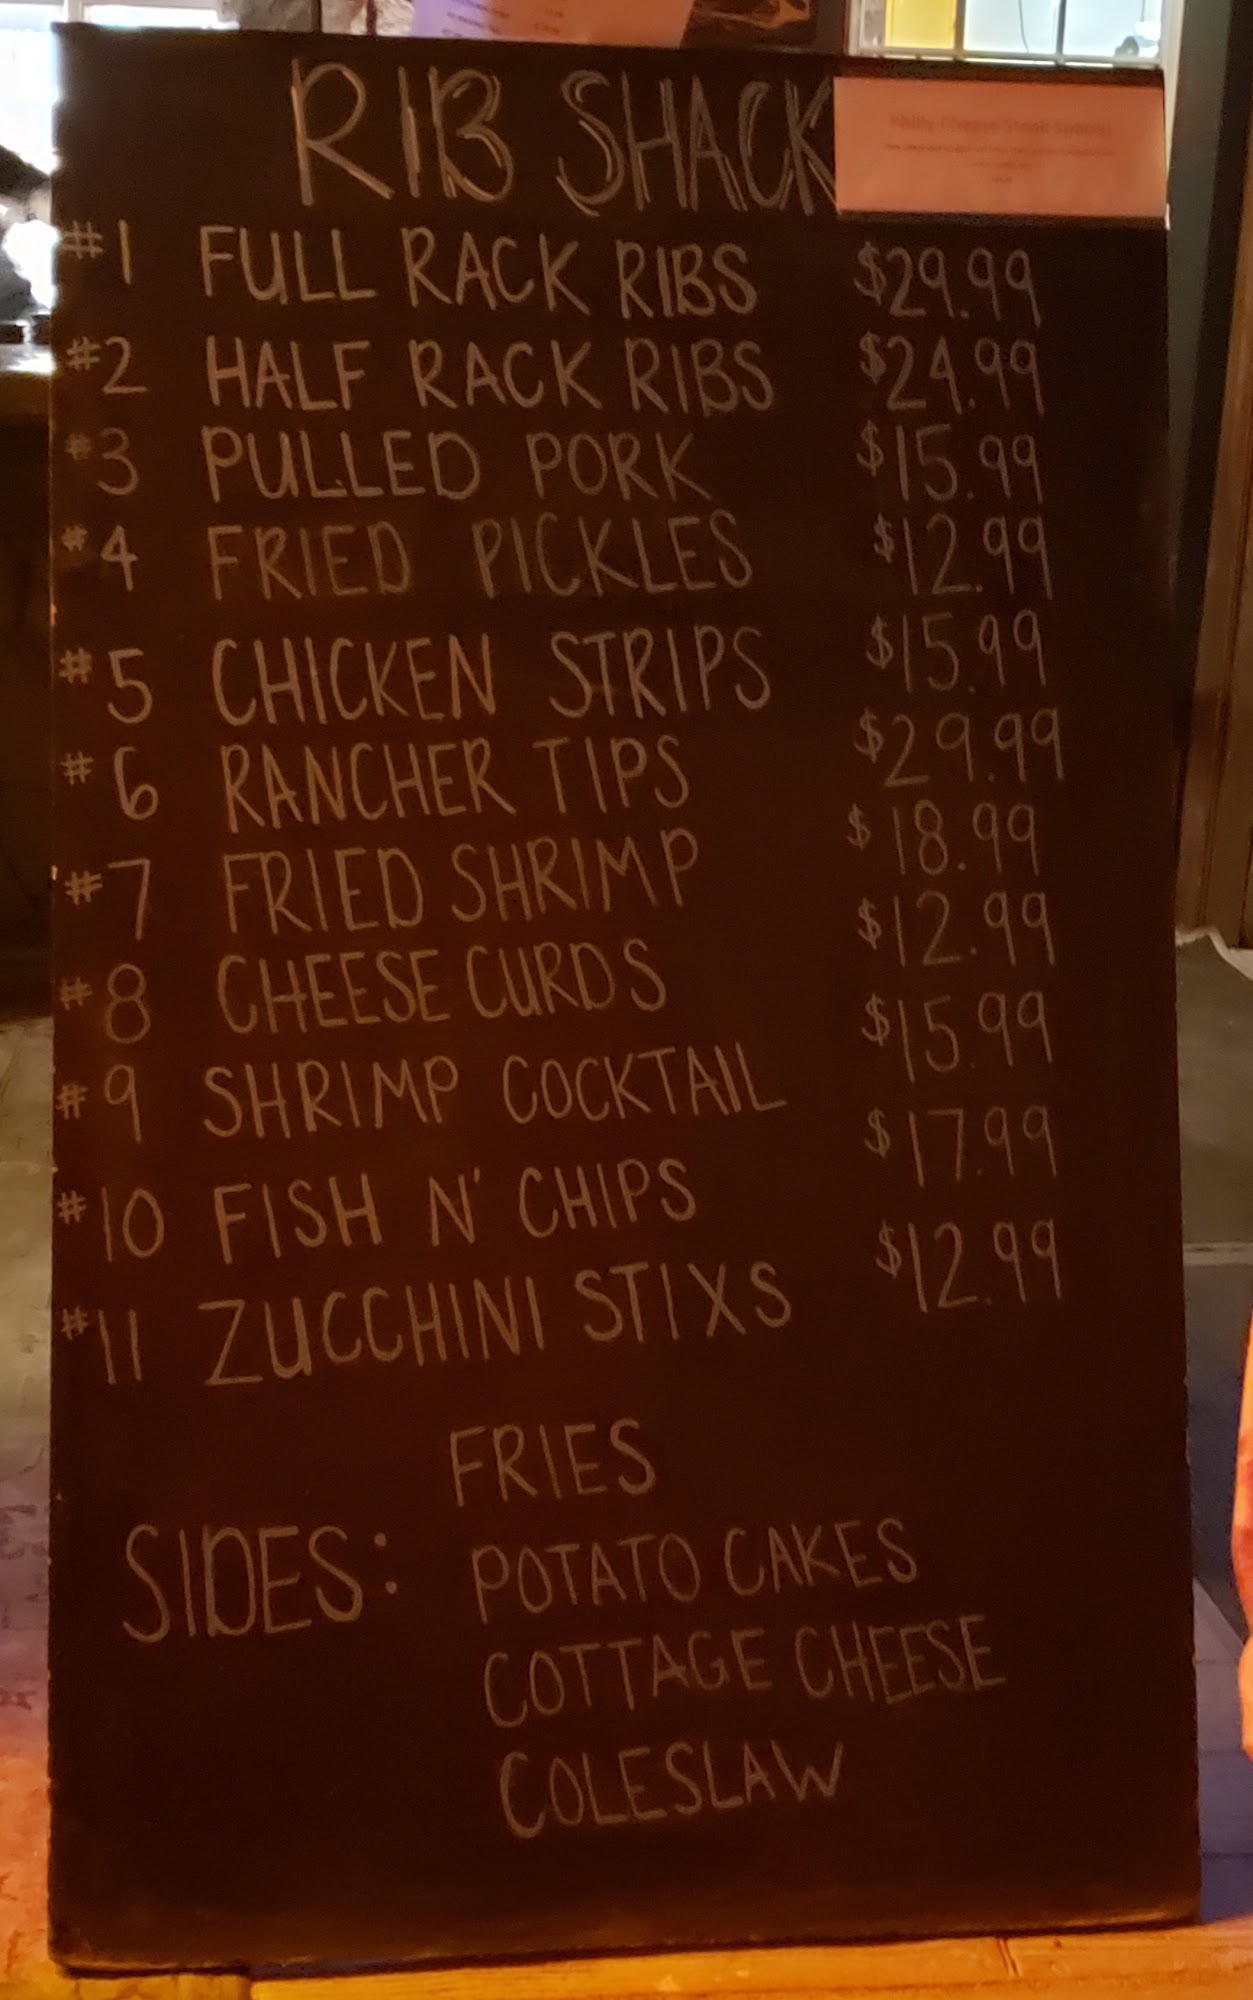 RIB SHACK
Philly Cheese Steak Special
#1 FULL RACK RIBS $29.99
#2 HALF RACK RIBS $24.99
#3 PULLED PORK $15.99
#4 FRIED PICKLES $12.99
#5 CHICKEN STRIPS $15.99
#6 RANCHER TIPS $29.99
#7 FRIED SHRIMP $18.99
#8 CHEESE CURDS $12.99
#9 SHRIMP COCKTAIL $15.99
#10 FISH N' CHIPS $17.99
#11 ZUCCHINI STIXS $12.99
SIDES:
FRIES
POTATO CAKES
COTTAGE CHEESE
COLESLAW